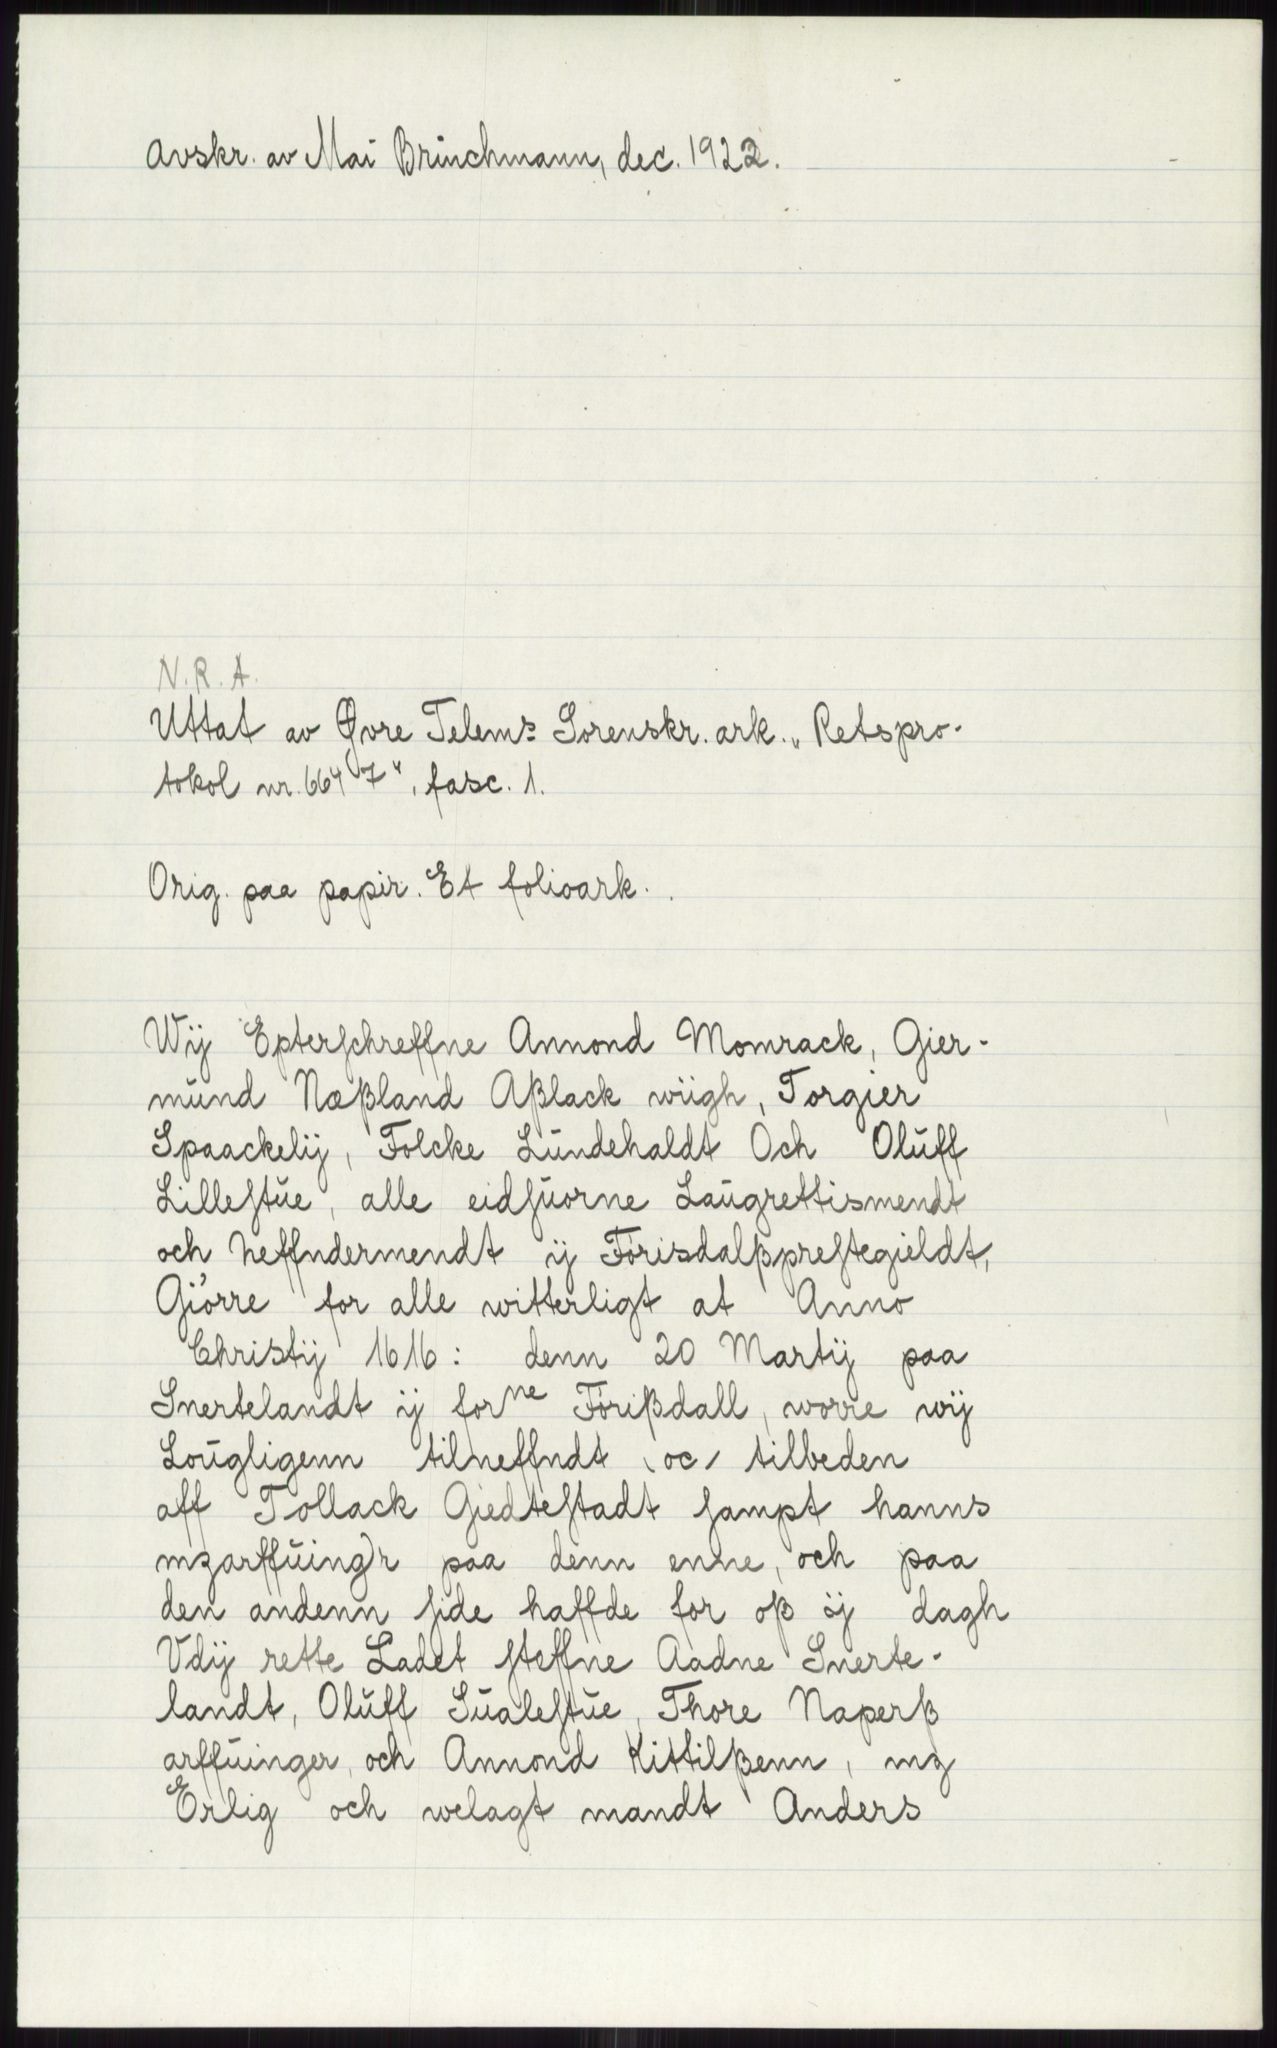 Avskr. av Mai Brinchmann, dec. 1922.
N.R.A.
Uttat av Øvre Telems Sorenskr. ark. „Retspro-
tokol nr. 664 7“, fasc. 1.
Orig. paa papir. Et folioark.
Wij Epterſchreffne Annond Momrack, Gier-
mūnd Næßland Aßlack wiigh, Torgier
Spaackelij, Folcke Lūndehaldt Och Olūff
Lilleſtūe, alle eidſūorne Laūgrettismendt
och neffndermendt ij Førisdalßpreſtegieldt,
Giørre for alle witterligt at Anno
Christij 1616: denn 20 Martij paa
Snertelandt ij forne Førißdall, worre wij
Loūgligenn tilneffndt (oc) tilbeden
aff Tollack Giedteſtadt ſampt hanns
mzarffūing)r paa denn enne, och paa
den andenn ſide haffde for oß ij dagh
Vdij rette Ladet ſteffne Aadne Snerte-
landt, Olūff Sūaleſtūe, Thore Naperß
arffūinger, och Annond Kittilßenn, mz
Erlig och welagt mandt Anders